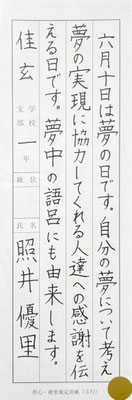 六月十日は夢の日です。自分の夢について考え
夢の実現に協力してくれる人達への感謝を伝
える日です。夢中の語呂にも由来します。
学校 支部 佳玄 一年 級位 氏名 照井優里
用心・硬筆規定用紙（3行）